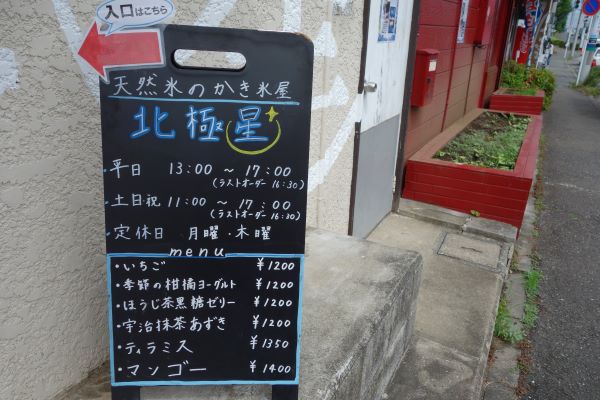 入口はこちら
天然氷のかき氷屋
北極星
・平日 13:00 〜 17:00
(ラストオーダー 16:30)
・土日祝 11:00 〜 17:00
(ラストオーダー 16:30)
・定休日 月曜・木曜
menu
・いちご ¥1200
・季節の柑橘ヨーグルト ¥1200
・ほうじ茶黒糖ゼリー ¥1200
・宇治抹茶あずき ¥1200
・ティラミス ¥1350
・マンゴー ¥1400